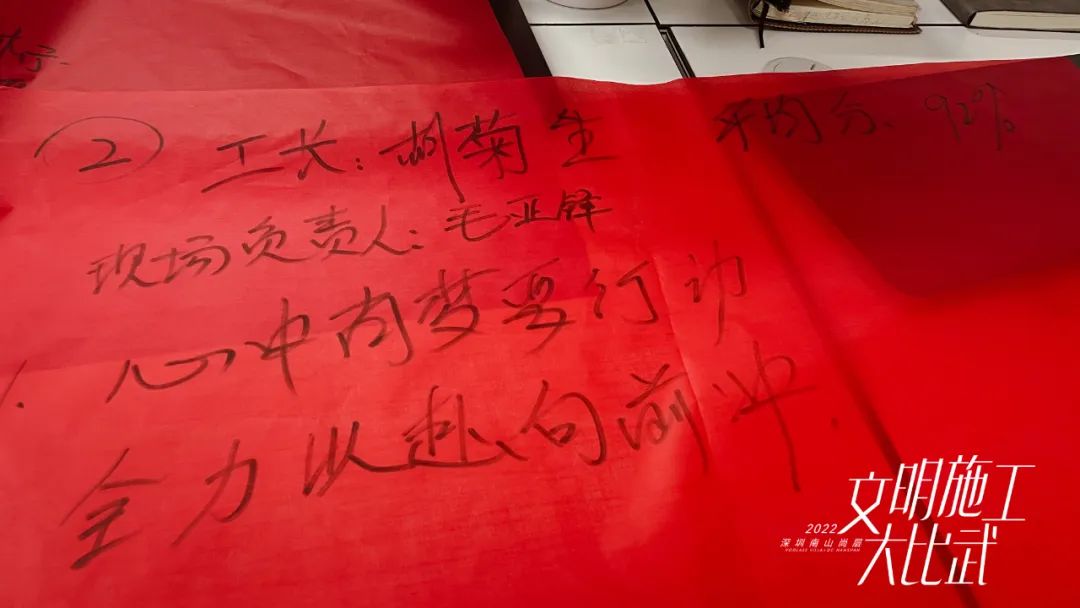 ② 工长:胡菊生 平均分:92%
现场负责人:毛亚锋
1. 心中有梦要行动
全力以赴向前冲.
2022
深圳南山尚层
文明施工
大比武